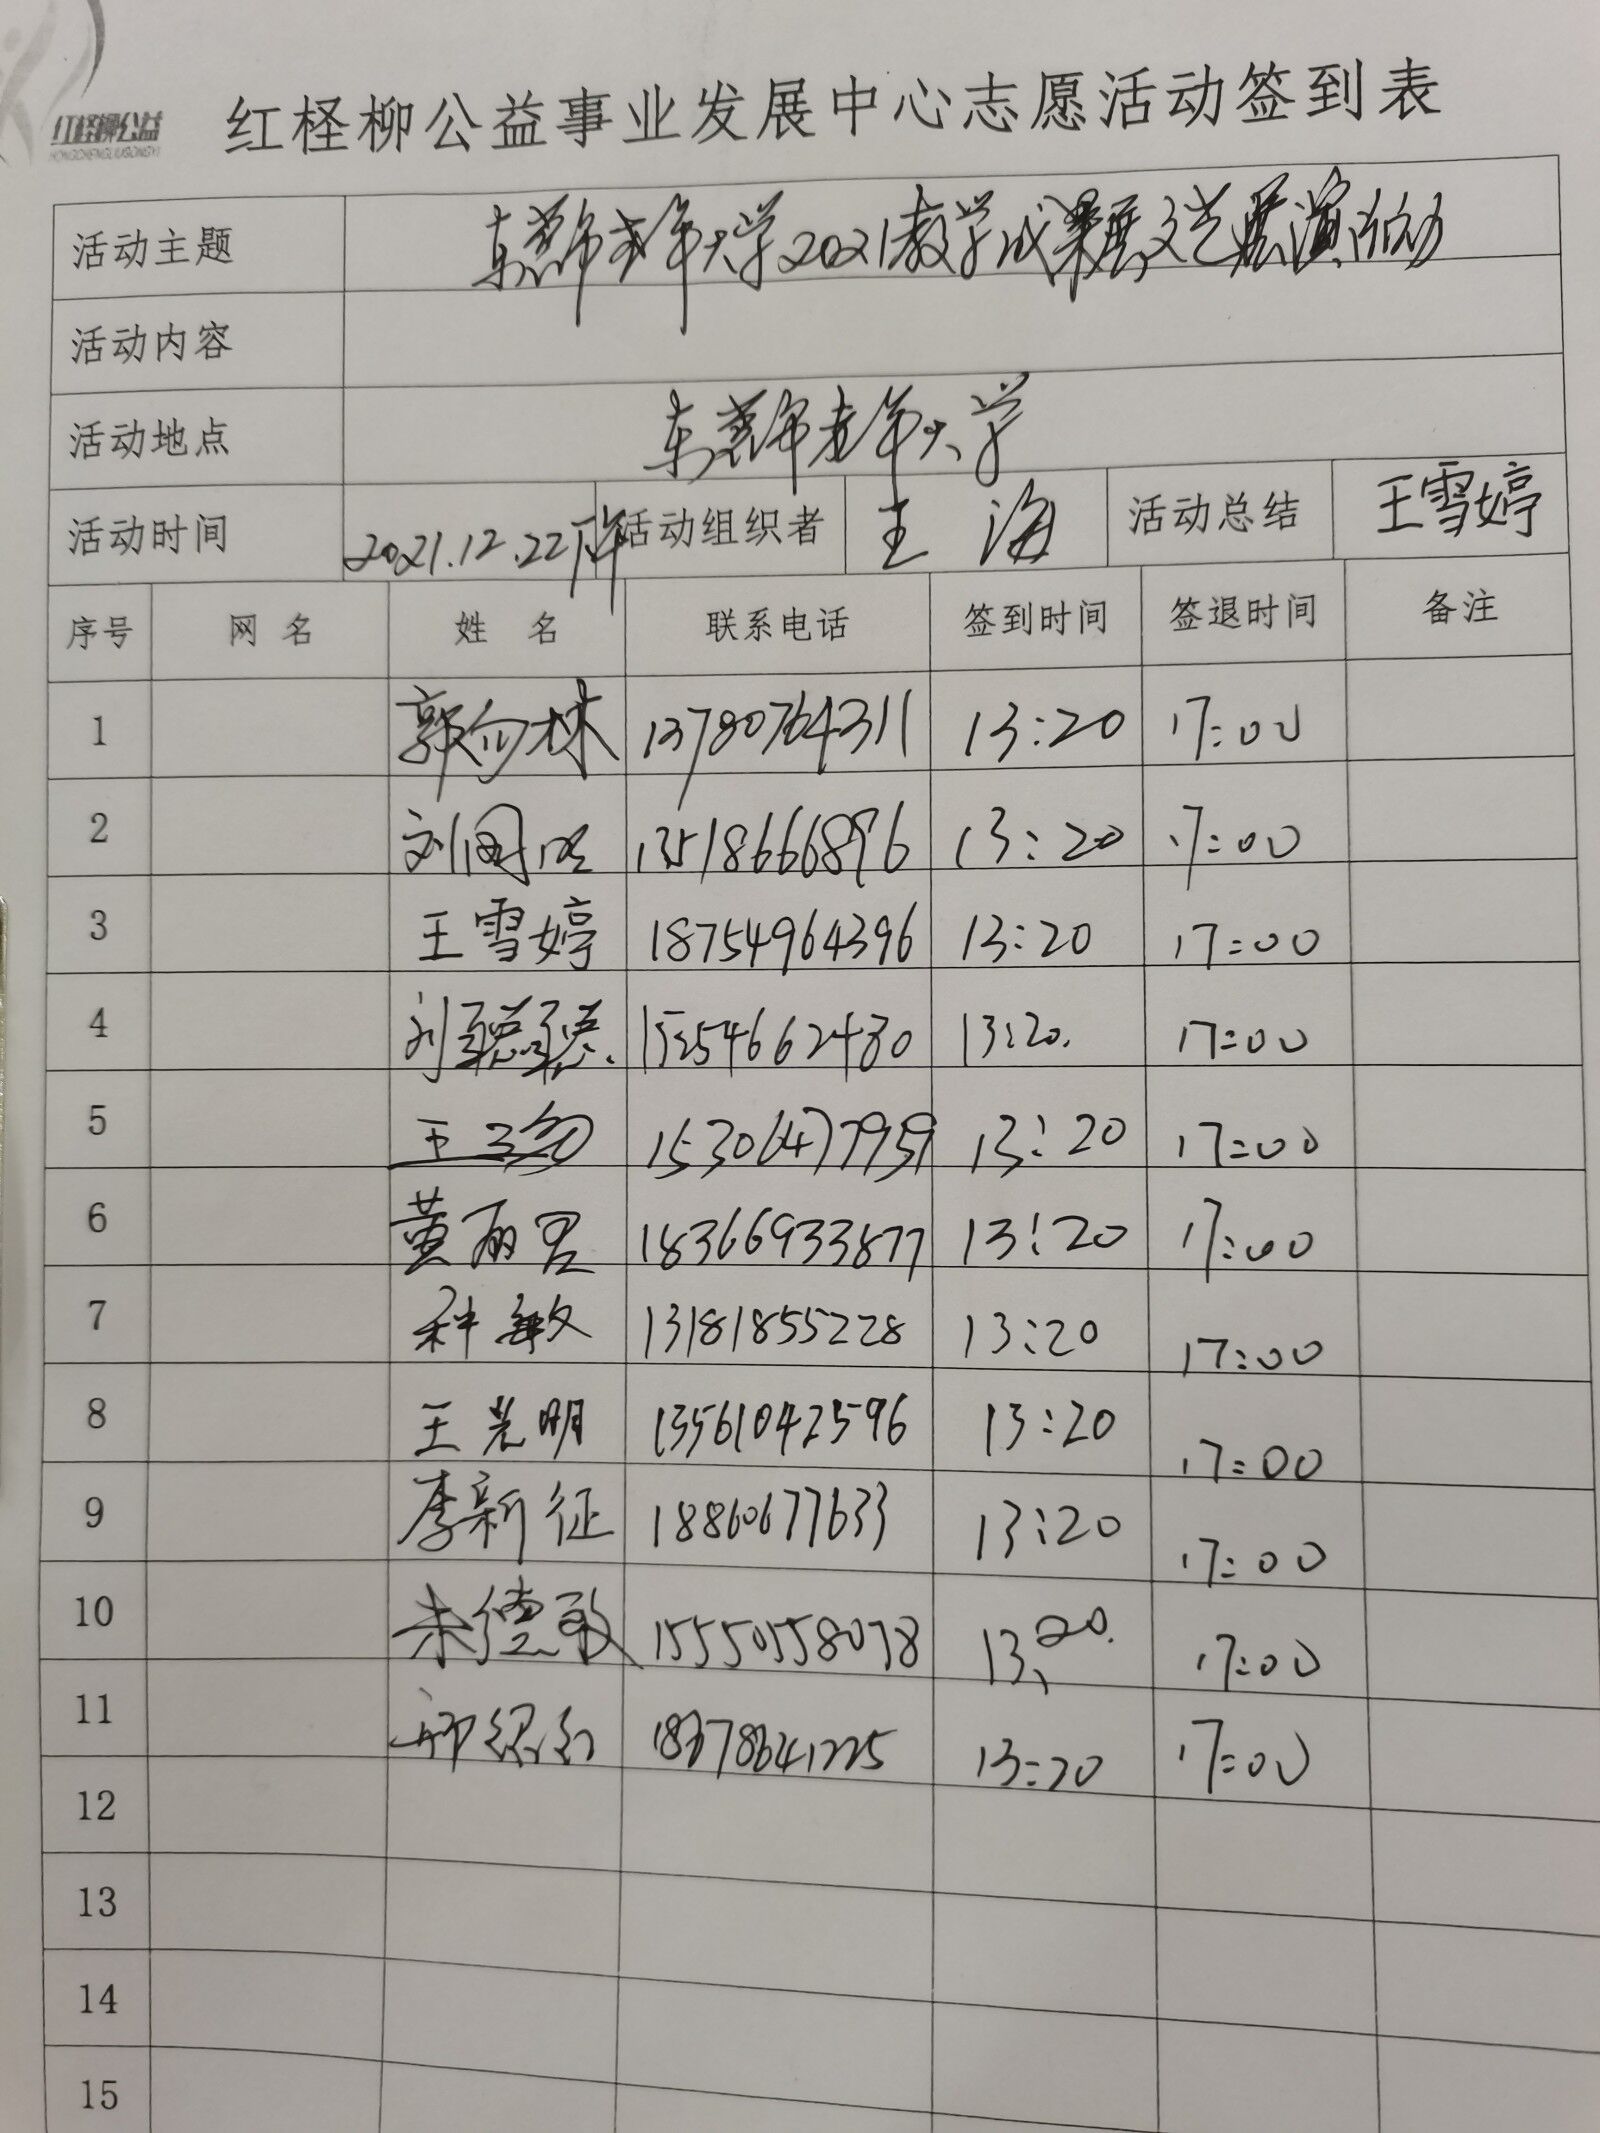 红柽柳公益
HONGCHENGLIUGONGYI
红柽柳公益事业发展中心志愿活动签到表
活动主题 东营市老年大学2021教学成果展文艺展演活动
活动内容
活动地点 东营市老年大学
活动时间 2021.12.22下午 活动组织者 王海 活动总结 王雪婷
序号 网名 姓名 联系电话 签到时间 签退时间 备注
1 郭向林 13780764311 13:20 17:00
2 刘国明 13518666896 13:20 17:00
3 王雪婷 18754964396 13:20 17:00
4 刘聪聪 15254662480 13:20. 17:00
5 王 15306477959 13:20 17:00
6 黄丽君 18366933877 13:20 17:00
7 种敏 13181855228 13:20 17:00
8 王光明 13561042596 13:20 17:00
9 李新征 18860677633 13:20 17:00
10 朱德敏 15550558078 13:20. 17:00
11 13:20 17:00
12
13
14
15